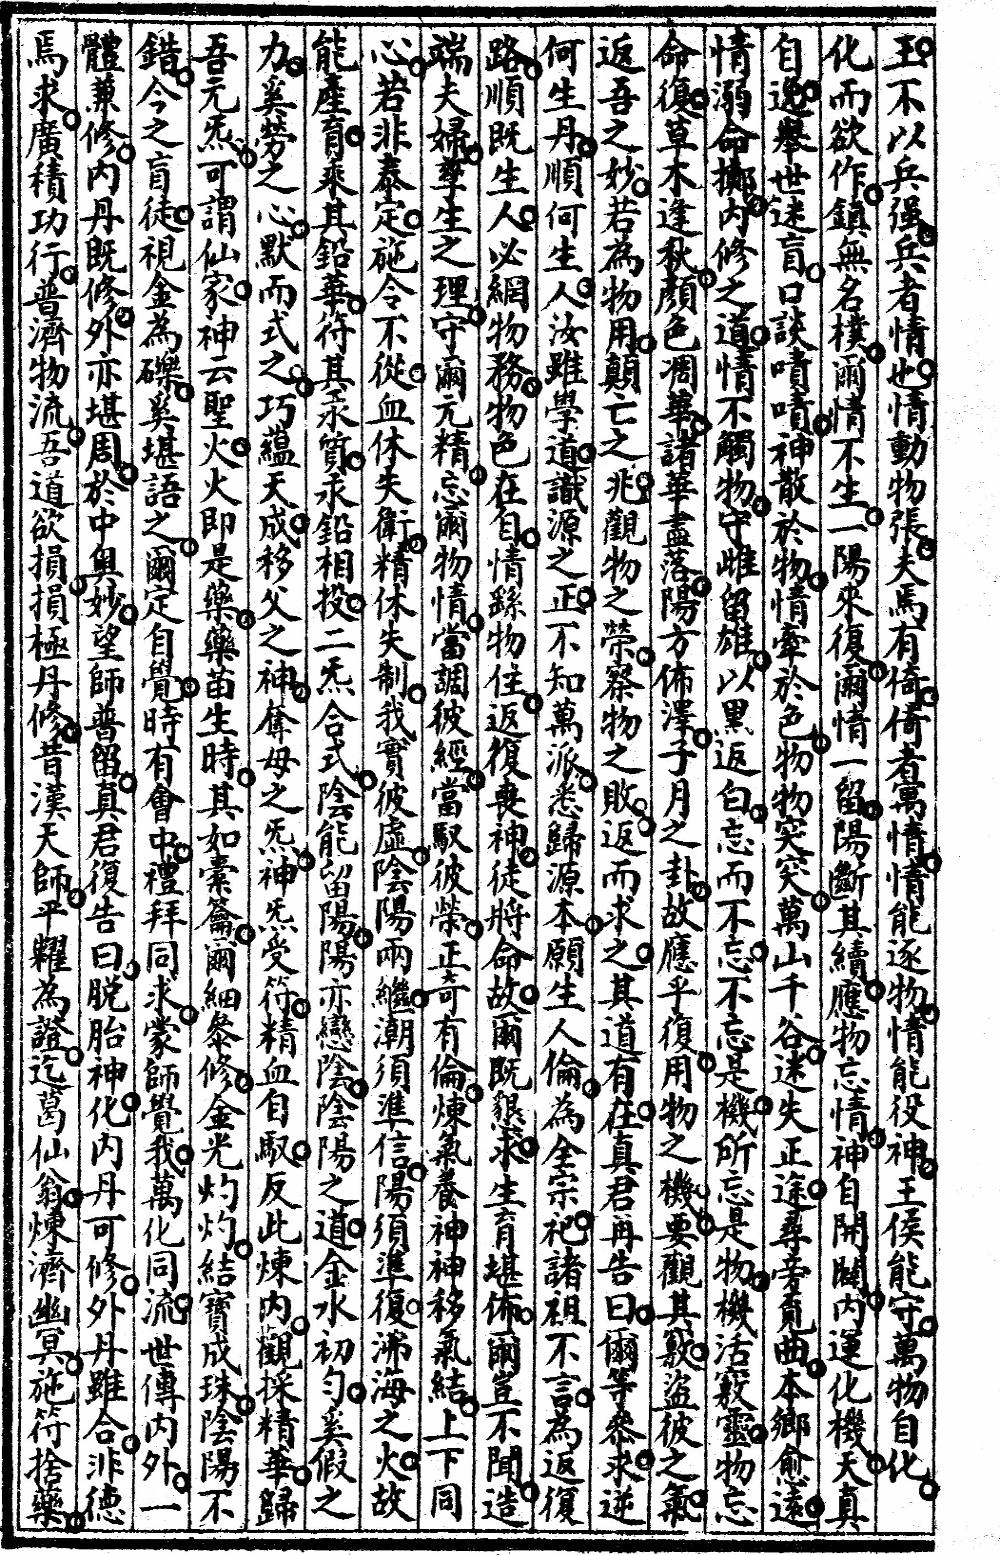 王不以兵强兵者情也情動物張夫馬有猗猗者寓情情能逐物情能役神王侯能守萬物自化
化而欲作鎮無名樸爾情不生一陽來復爾情一留陽斷其續應物忘情神自開闢內運化機天真
自逸舉世迷盲口談嘖嘖神散於物情牽於色物物突突萬山千谷迷失正途尋旁負曲本鄉愈遠
情溺命擲內修之道情不觸物守雌留雄以黑返白忘而不忘不忘是機所忘是物機活竅靈物忘
命復草木逢秋顏色凋華諸華盡落陽方佈澤子月之卦故應乎復用物之機要觀其竅盜彼之氣
返吾之妙若為物用顛亡之兆觀物之榮察物之敗返而求之其道有在真君再告曰爾等叅求逆
何生丹順何生人汝雖學道識源之正不知萬派悉歸源本願生人倫為全宗祀諸祖不言為返復
路順既生人必網物務物色在自情繇物住返復喪神徒將命故爾既懇求生育堪佈爾豈不聞造
端夫婦孳生之理守爾元精忘爾物情當調彼經當馭彼榮正奇有倫煉氣養神神移氣結上下同
心若非泰定施令不從血休失衛精休失制我實彼虛陰陽兩繼潮須準信陽須準復沸海之火故
能產育乘其鉛華符其汞質汞鉛相投二炁合式陰能留陽陽亦戀陰陰陽之道金水初勻奚假之
力奚勞之心默而式之巧蘊天成移父之神奪母之炁神炁受符精血自馭反此煉內觀採精華歸
吾元炁可謂仙家神云聖火火即是藥藥苗生時其如橐籥爾細叅修金光灼灼結寶成珠陰陽不
錯今之盲徒視金為礫奚堪語之爾定自覺時有會中禮拜同求蒙師覺我萬化同流世傳內外一
體兼修內丹既修外亦堪周於中奧妙望師普留真君復告曰脫胎神化內丹可修外丹雖合非德
焉求廣積功行普濟物流吾道欲損損極丹修昔漢天師平糶為證迄葛仙翁煉濟幽冥施符捨藥